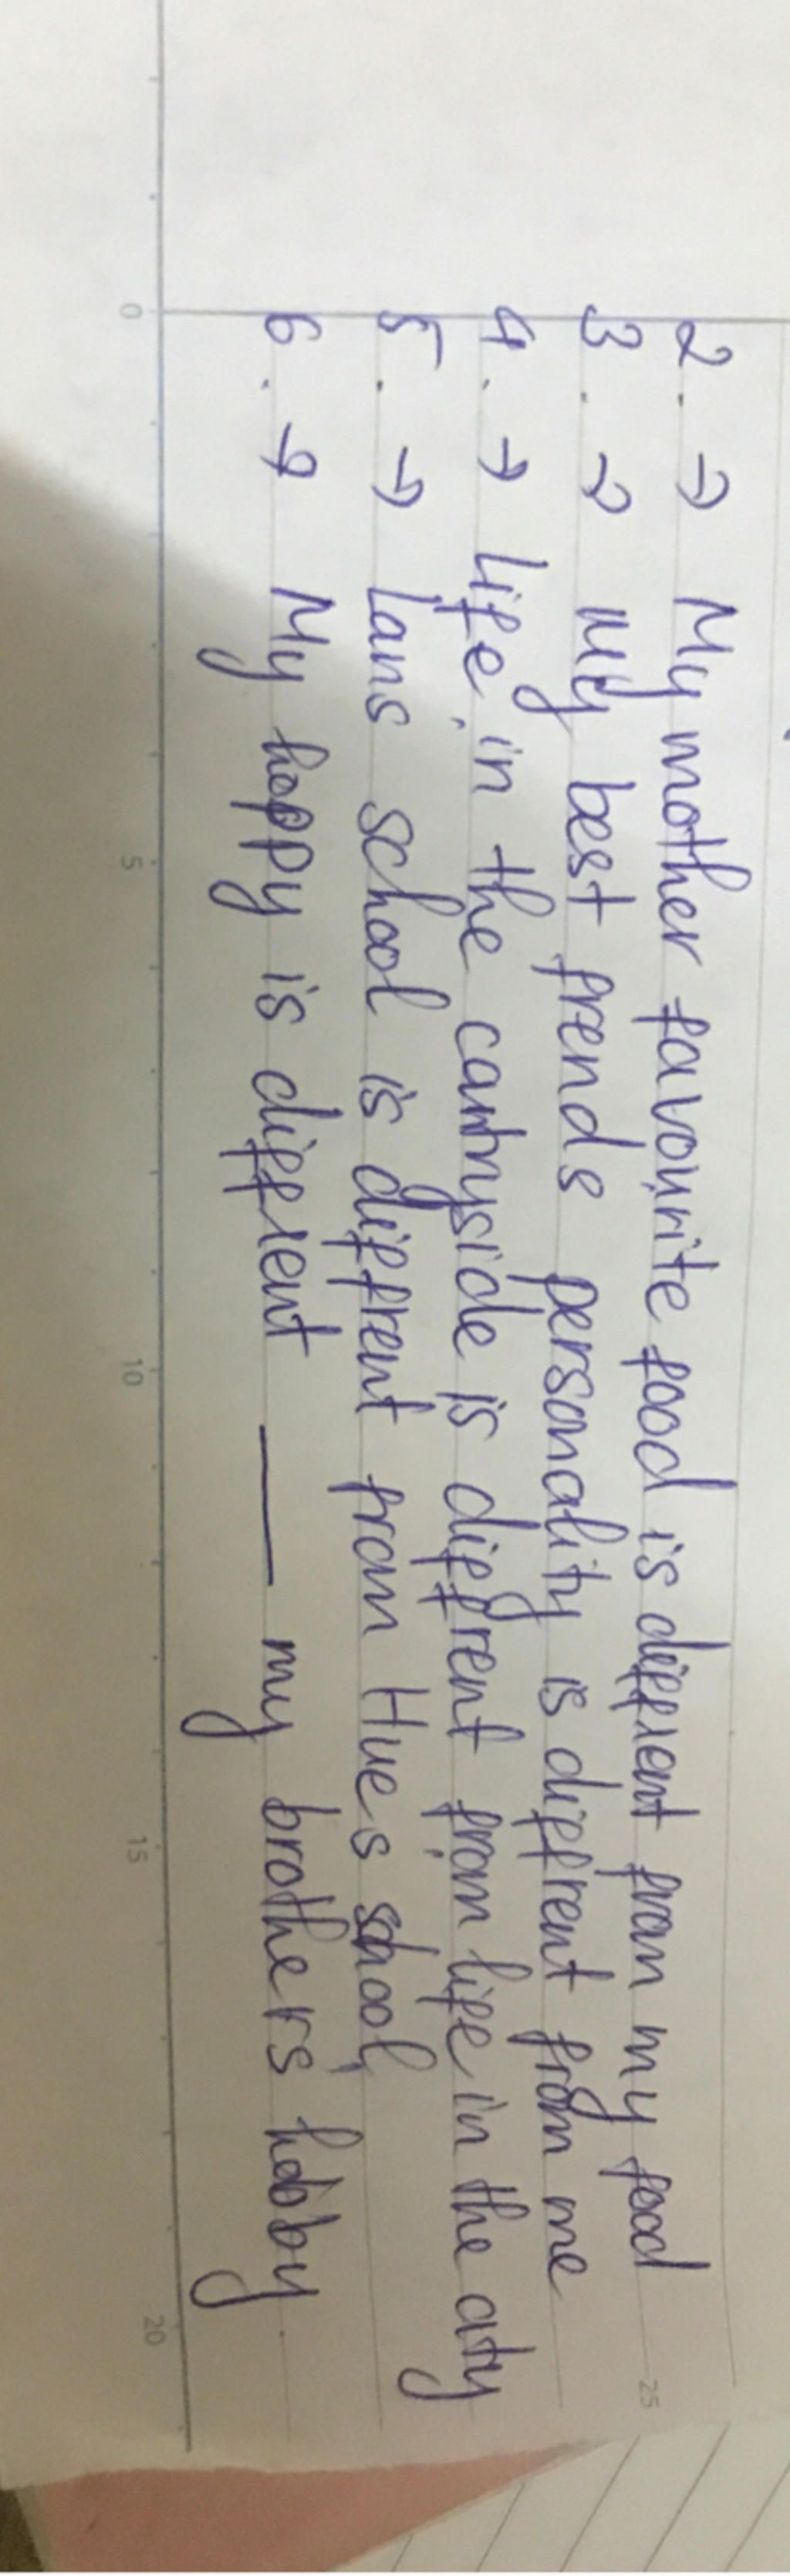 2. → My mother favourite food is diffrent from my food
3. → My best frends personality is diffrent from me
4. → Life in the cantryside is diffrent from life in the city
5. → Lans school is diffrent from Hues school
6. → My hoppy is diffrent ___ my brothers' hobby.
0 5 10 15 20
25